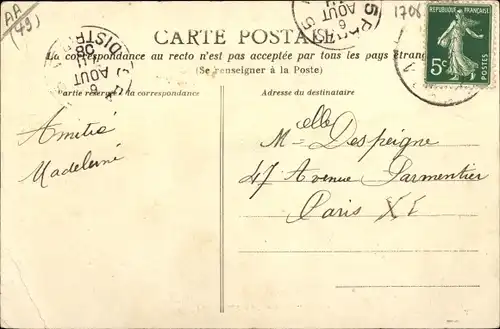 AA
(49)
1708
CARTE POSTALE
La correspondance au recto n'est pas acceptée par tous les pays étran
(Se renseigner à la Poste)
RÉPUBLIQUE FRANÇAISE
5c
POSTES
6
AOUT
08
DISTR
6
AOUT
Partie réservée à la correspondance
Adresse du destinataire
Amitié
Madeleine
Melle Despeigne
47 Avenue Parmentier
Paris XI